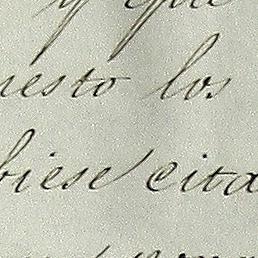 y que
uesto los
biese cita